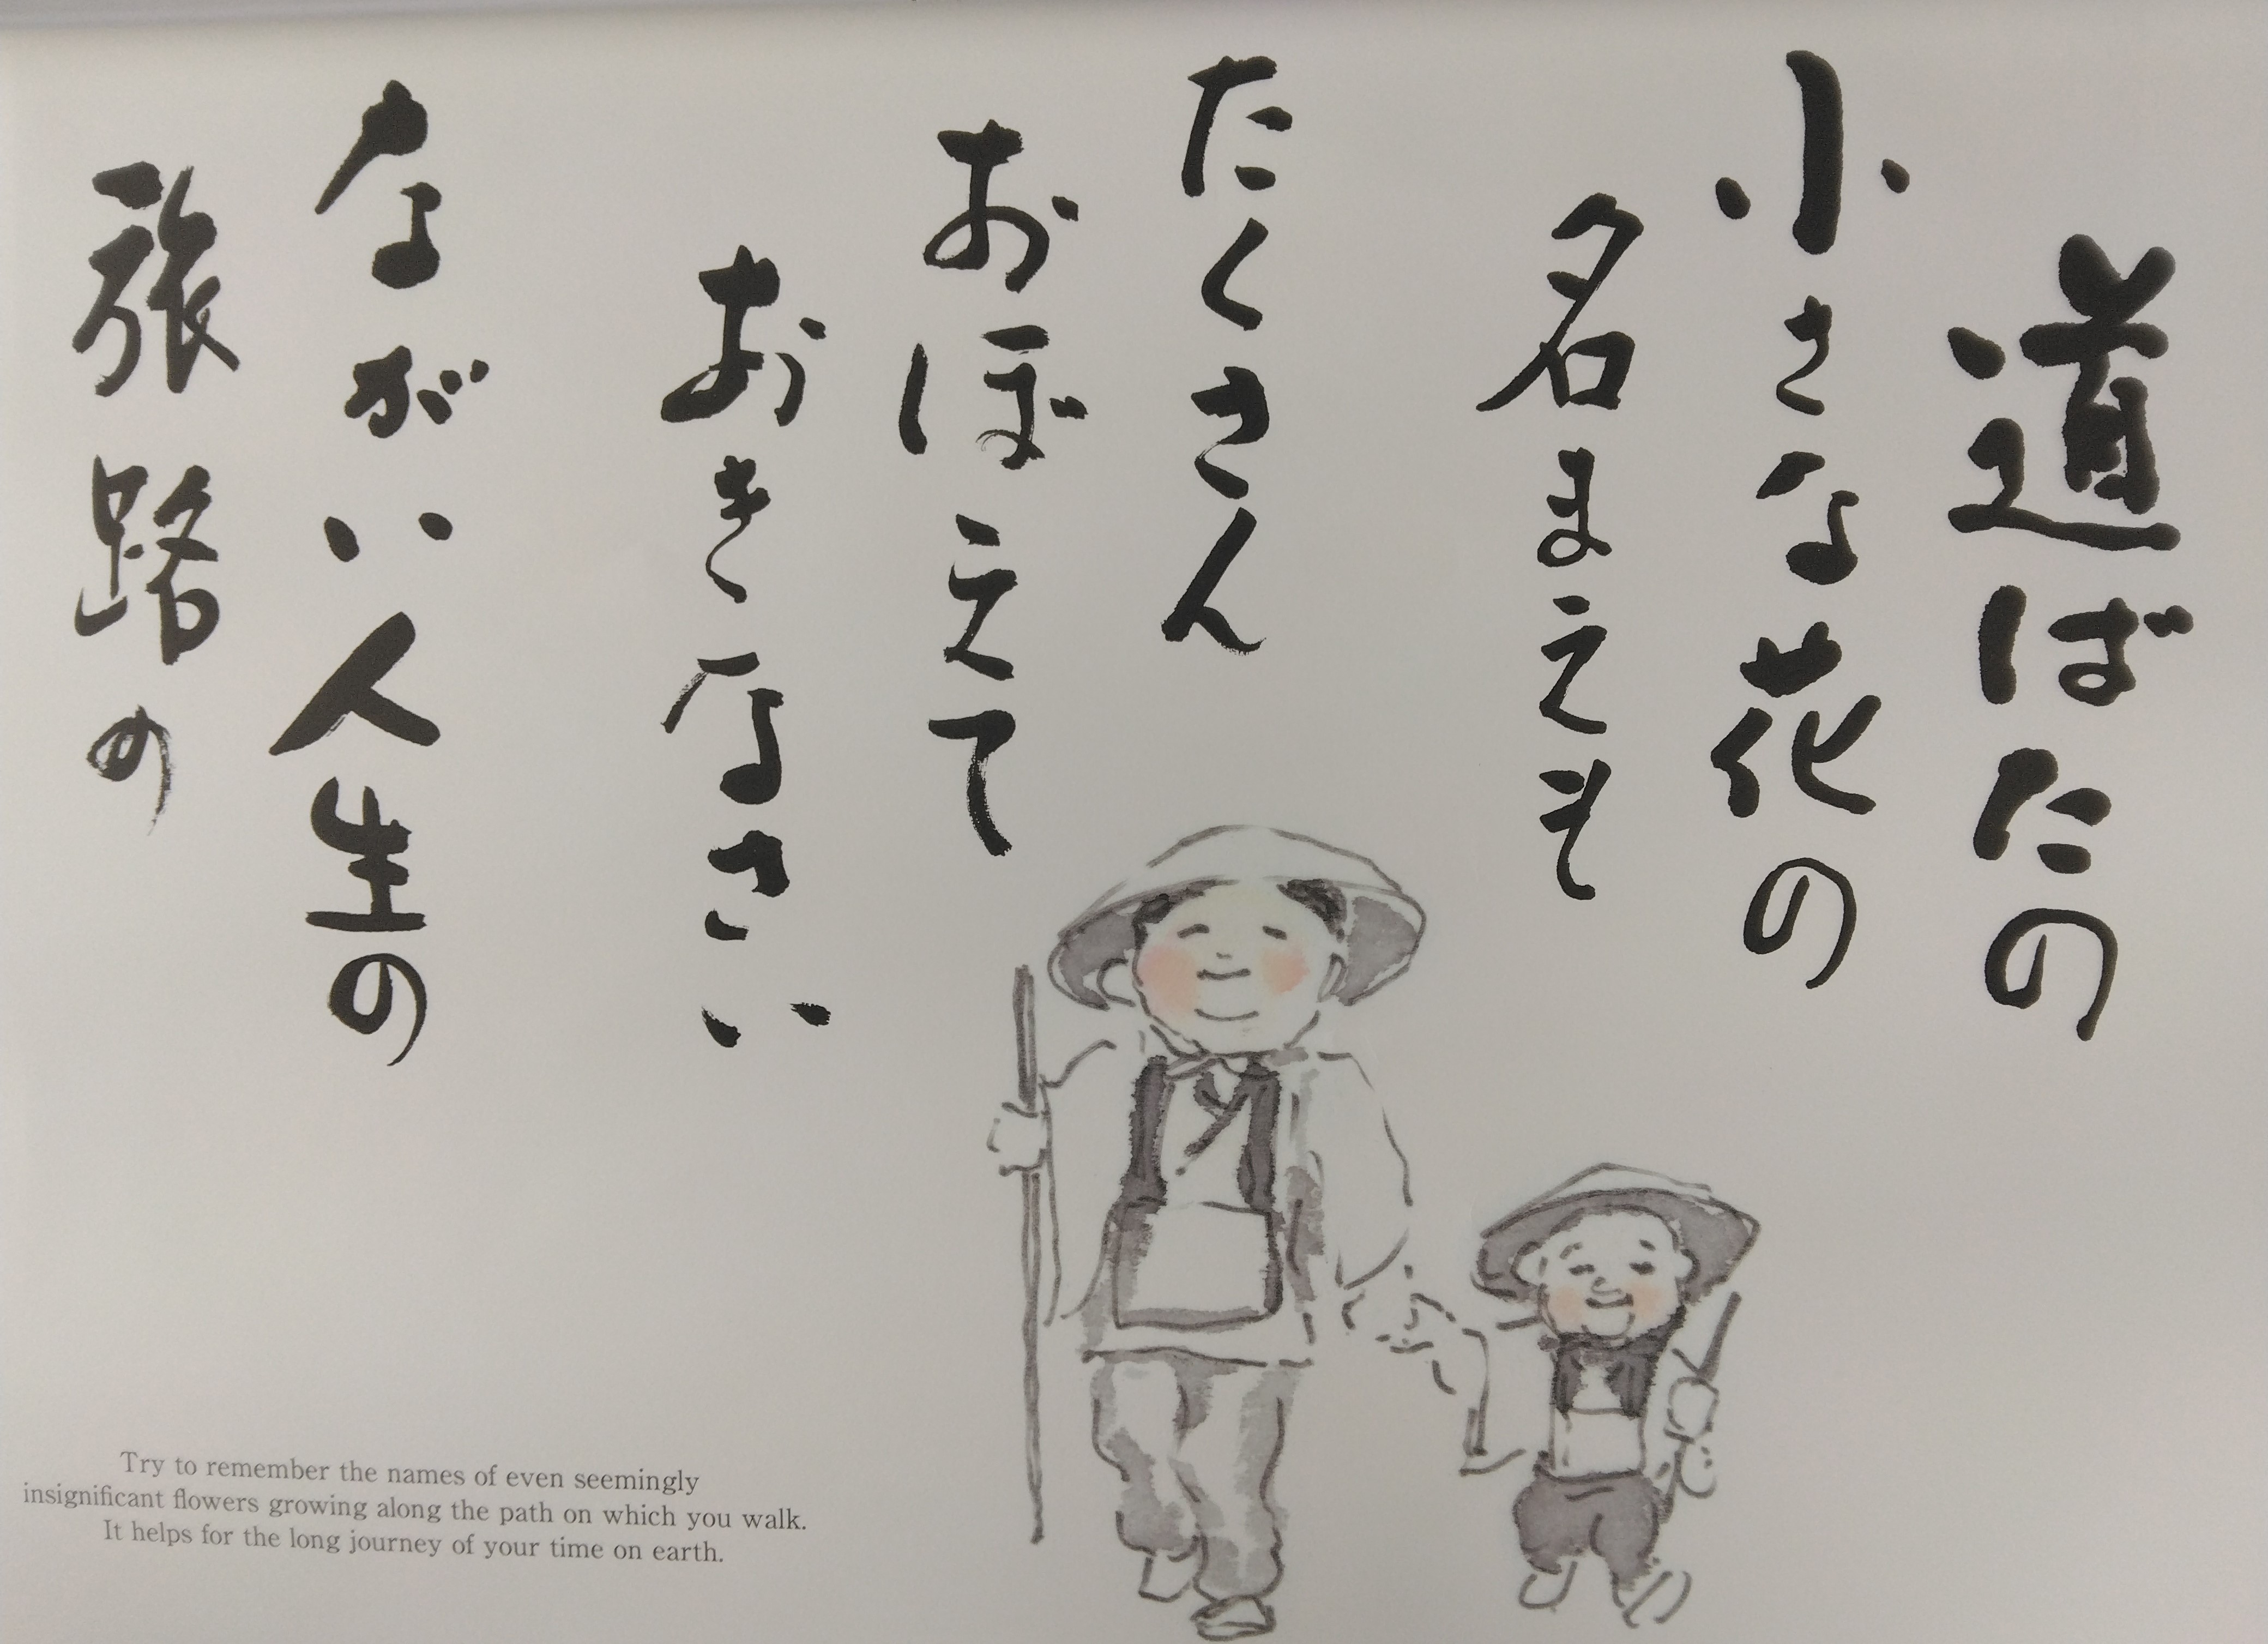 道ばたの
小さな花の
名まえも
たくさん
おぼえて
おきなさい
ながい人生の
旅路の
Try to remember the names of even seemingly
insignificant flowers growing along the path on which you walk.
It helps for the long journey of your time on earth.